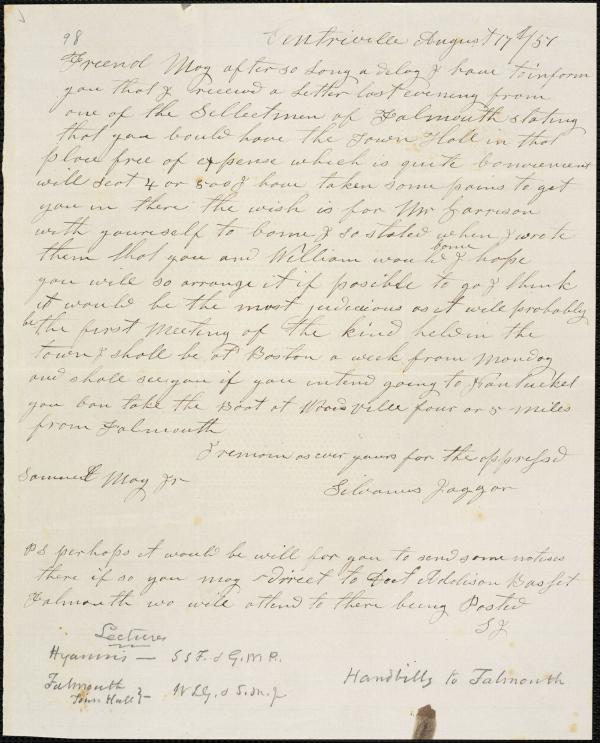 98 Centriville August 17th/51
Friend May after so long a delay I have to inform
you that I received a Letter last evening from
one of the Sellectmen of Falmouth stating
that you could have the Town Hall in that
place free of expense which is quite convenient
will seat 4 or 500 I have taken some pains to get
you in there the wish is for Mr Garrison
with yourself to come & so stated when I wrote
them that you and William would come I hope
you will so arrange it if posible to go I think
it would be the most judicious as it will probably
be the first Meeting of the kind held in the
town I shall be at Boston a week from Monday
and shall see you if you intend going to Nantucket
you can take the Boat at Woods Ville four or 5 miles
from Falmouth
I remain as ever yours for the oppressd
Samuel May Jr Silvanus Jaggar
PS perhaps it would be will for you to send some notises
there if so you may direct to Doct Addison Basset
Falmouth wo will attend to there being Posted
SJ
Lectures
Hyannis — S S F. & G. W. P.
Handbills to Falmouth
Falmouth
Town Hall }— W L G. & S. M. J